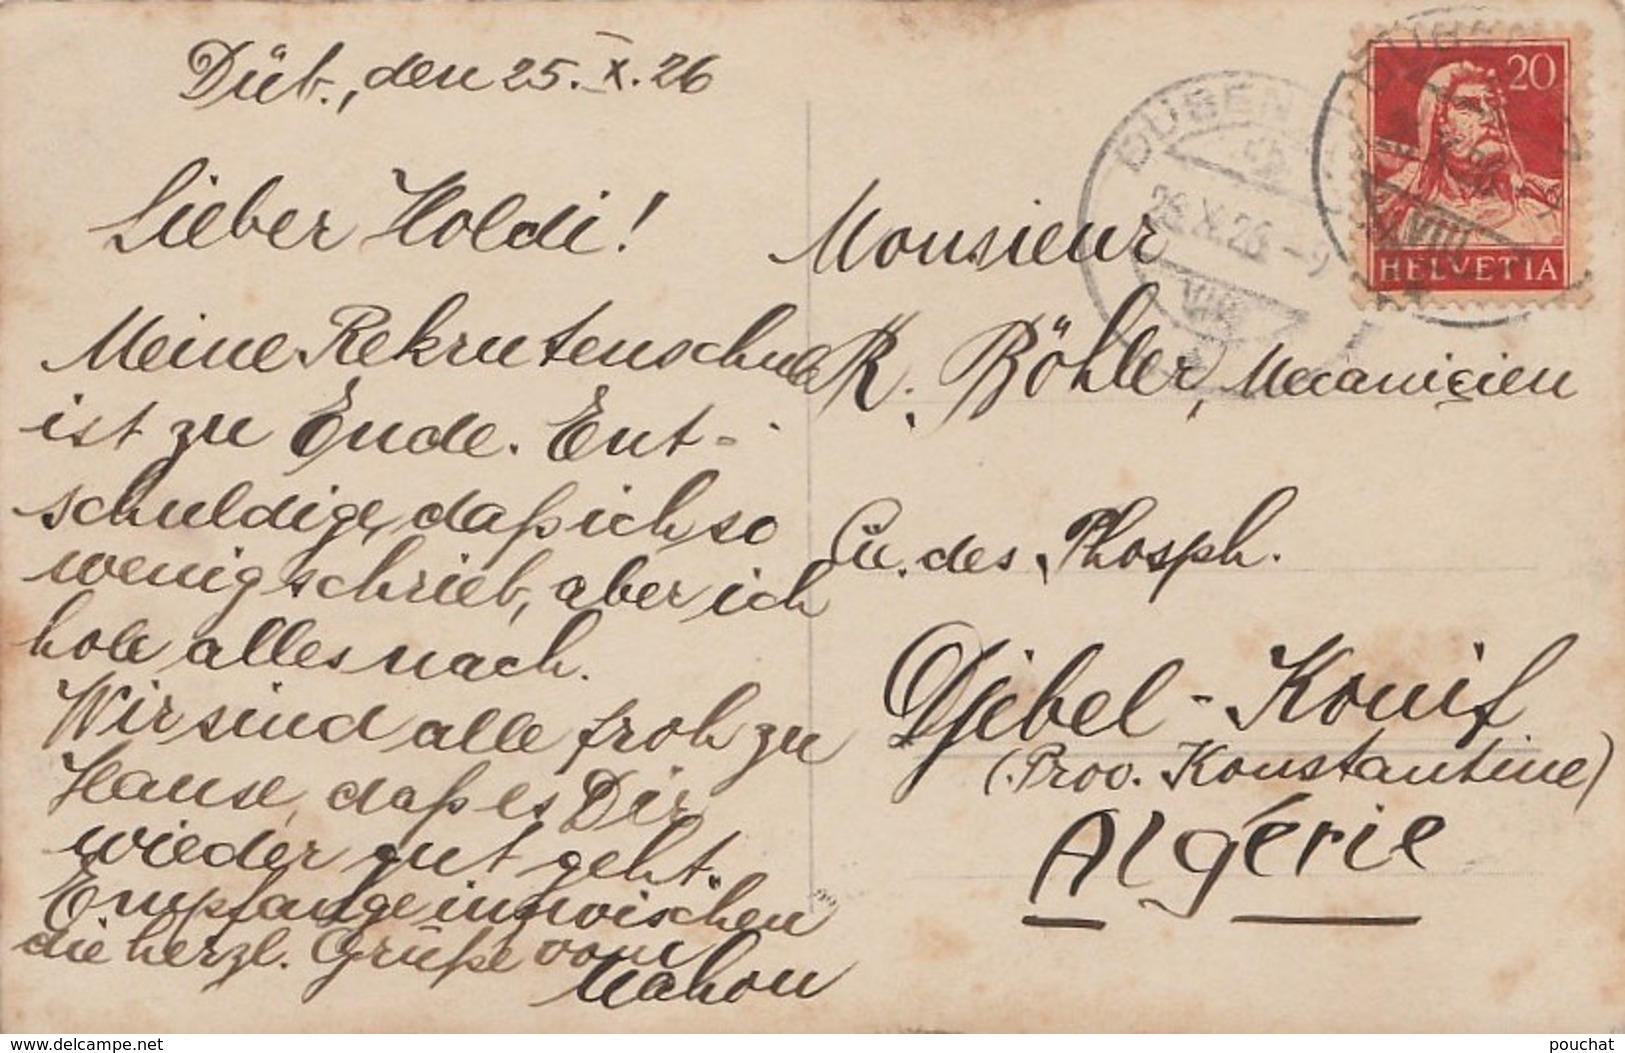 Düb., den 25. X. 26
Lieber Holdi!
Meine Rekrutenschule
ist zu Ende. Ent-
schuldige, daß ich so
wenig schrieb, aber ich
hole alles nach.
Wir sind alle froh zu
Hause, daß es Dir
wieder gut geht.
Empfange inzwischen
die herzl. Grüße vom
Monsieur
R. Böhler, Mecanicien
Cie. des Phosph.
Djebel-Kouif
(Prov. Konstantine)
Algérie
DÜBEN
26.X.26.-9
VIII
20
HELVETIA
www.delcampe.net
pouchat